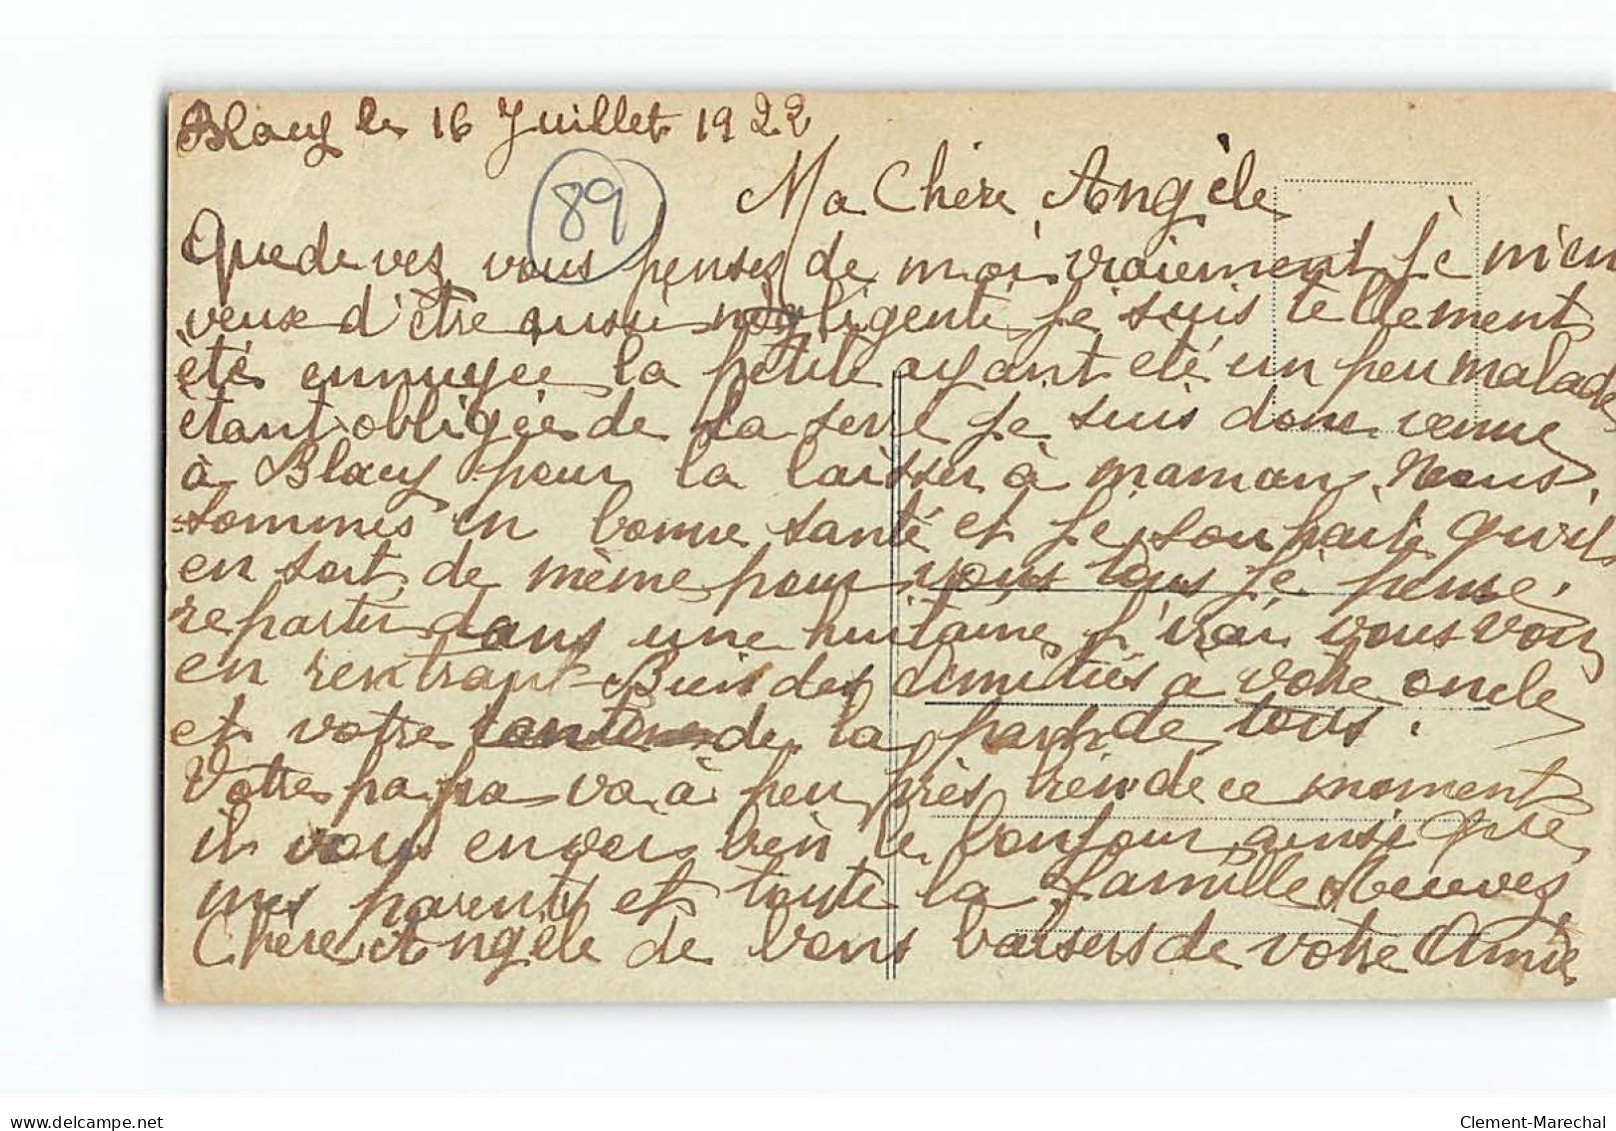 Blacy le 16 Juillet 1922
89
Ma Chère Angèle
Que devez vous pensez de moi vraiement je m'en
veux d'être aussi négligente je suis tellement
été ennuyée la petite ayant été un peu malade
étant obligée de la sevré je suis donc venue
à Blacy pour la laisser à maman. Nous
sommes en bonne santé et je souhaite qu'il
en soit de même pour vous tous je pense
repartir dans une huitaine j'irai vous voir
en rentrant Bien des amitiés à votre oncle
et votre tante de la part de tous.
Votre papa va à peu près bien de ce moment
il vous envoi bien le bonjour ainsi que
mes parents et toute la famille Recevez
Chère Angèle de bons baisers de votre Amie
delcampe.net
Clement-Marechal